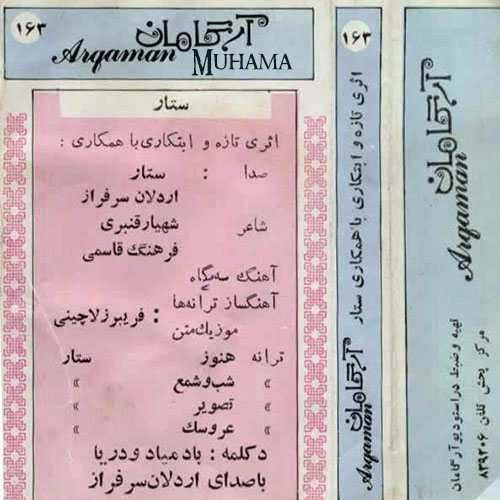 ۱۶۳
آرگامان
Arqaman MUHAMA
ستار
اثری تازه و ابتکاری با همکاری :
صدا : ستار
اردلان سرفراز
شاعر شهیار قنبری
فرهنگ قاسمی
آهنگ سه‌گاه
آهنگساز ترانه‌ها : فریبرز لاچینی
موزیک متن
ترانه هنوز ستار
» شب و شمع »
» تصویر »
» عروسك »
دکلمه : باد میاد و دریا
با صدای اردلان سرفراز
۱۶۳
اثری تازه و ابتکاری با همکاری ستار
آرگامان
Arqaman
آرگامان
Arqaman
تهیه و ضبط در استودیو آرگامان
مرکز پخش تلفن ۸۳۹۲۰۶